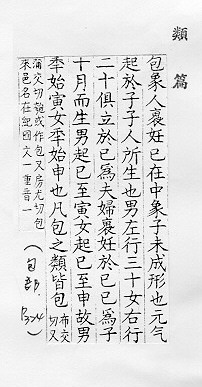 類篇
包象人褢妊巳在中象子未成形也元气
起於子子人所生也男左行三十女右行
二十俱立於巳為夫婦褢妊於巳巳為子
十月而生男起巳至寅女起巳至申故男
秊始寅女秊始申也凡包之類皆包 布交切又
蒲交切匏或作包又房尤切包
來邑名在紀国文一重音一
(包部. P324)